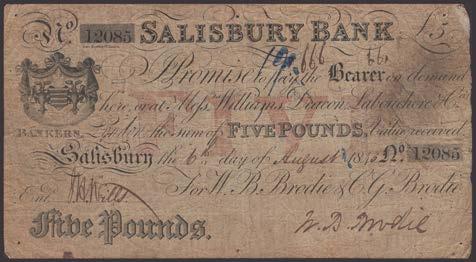 No. 12085 SALISBURY BANK £5
I Promise to pay the Bearer on demand
here, or at Messrs Williams, Deacon, Labouchere & Co.
BANKERS. London the sum of FIVE POUNDS, Value received
Salisbury the 6th day of August No. 12085
Entd. For W. B. Brodie & C. G. Brodie
Five Pounds. W. B. Brodie